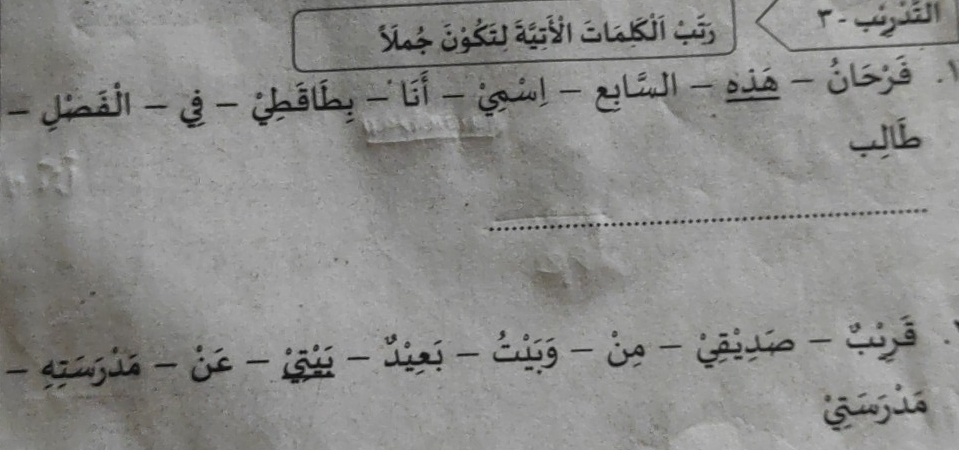 التَّدْرِيْب - ٣
رَتِّبْ اَلْكَلِمَاتَ الْأَتِيَّةَ لِتَكُوْنَ جُملَاً
١. فَرْحَانُ – هَذِهِ – السَّابِعِ – اِسْمِيْ – أَنَا – بِطَاقَطِيْ – فِي – الْفَصْلِ –
طَالِب
. قَرِيْبٌ – صَدِيْقِيْ – مِنْ – وَبَيْتُ – بَعِيْدٌ – بَيْتِيْ – عَنْ – مَدْرَسَتِهِ –
مَدْرَسَتِيْ